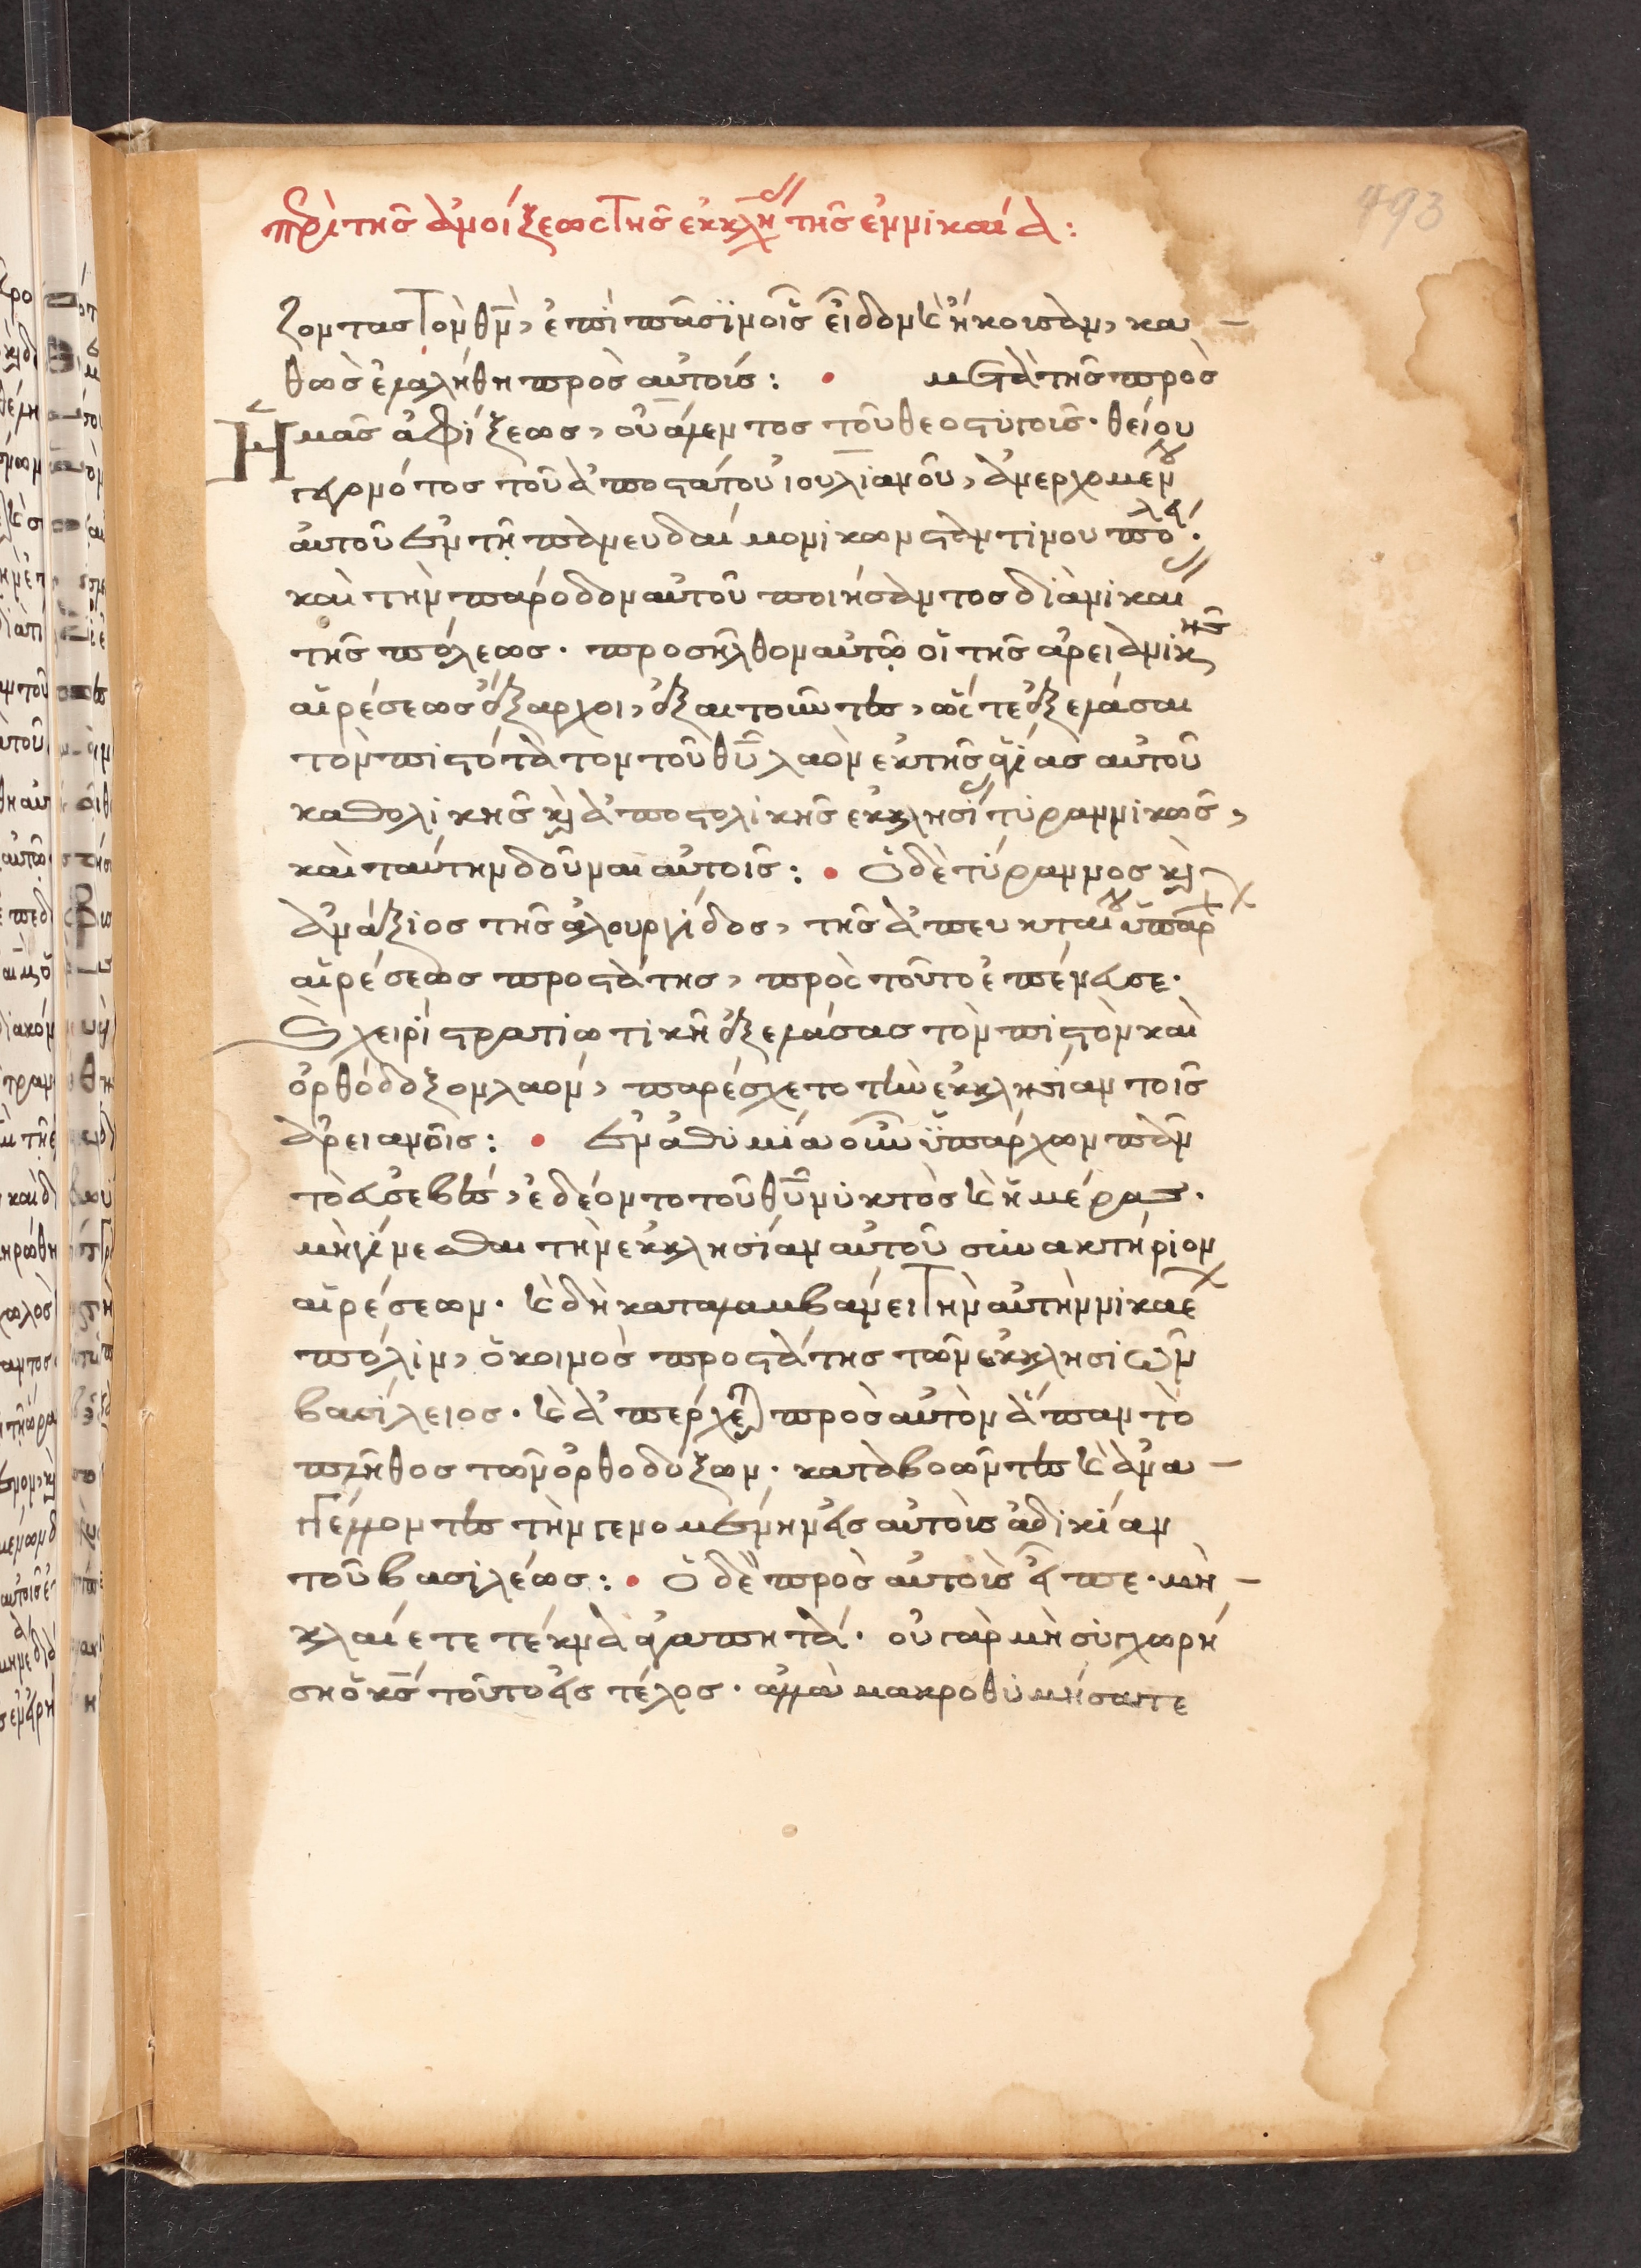 περὶ τῆς ἀνοίξεως τῆς ἐκκλη τῆς ἐν νικαία:
493
ζοντας τὸν θν, ἐπὶ πᾶσιν οἷς εἶδον καὶ ἤκουσαν, κα-
θὼς ἐλαλήθη πρὸς αὐτούς: • μετὰ τῆς πρὸς
Ἡμᾶς ἀφίξεως, οὐαλεντος τοῦ θεοστυγοῦς. θείου
γεγονότος τοῦ ἀποστάτου ἰουλιανοῦ, ἀνερχομενου
αὐτοῦ ἐν τῇ πανευδαίμονι κωνσταντίνου πόλει.
καὶ τὴν πάροδον αὐτοῦ ποιήσαντος διὰ νικαί
τῆς πόλεως. προσῆλθον αὐτῷ οἱ τῆς ἀρειανικῆς
αἱρέσεως ἔξαρχοι, ἐξαιτοῦντες, ὥστε ἐξελάσαι
τὸν πιστότατον τοῦ θυ λαὸν ἐκ τῆς ἁγίας αὐτοῦ
καθολικῆς καὶ ἀποστολικῆς ἐκκλησί τυραννικῶς,
καὶ ταύτην δοῦναι αὐτοῖς: • Ὁ δὲ τύραννος καὶ
ἀνάξιος τῆς ἁλουργίδος, τῆς ἀπευκταίου ὑπάρχων
αἱρέσεως προστάτης, πρὸς τοῦτο ἐπένευσε.
Καὶ χειρὶ στρατιωτικῇ ἐξελάσας τὸν πιστὸν καὶ
ὀρθόδοξον λαόν, παρέσχετο τὴν ἐκκλησίαν τοῖς
ἀρειανοῖς: • Ἐν ἀθυμία οὖν ὑπάρχων πᾶν
τὸ εὐσεβὲς, ἐδέοντο τοῦ θυ νυκτὸς καὶ ἡμέρας.
μὴ γίνεσθαι τὴν ἐκκλησίαν αὐτοῦ συνακτήριον
αἱρέσεων. καὶ δὴ καταλαμβάνει τὴν αὐτὴν νικαέων
πόλιν, ὁ κοινὸς προστάτης τῶν ἐκκλησιῶν
βασίλειος. καὶ ἀπέρχεται πρὸς αὐτὸν ἅπαν τὸ
πλῆθος τῶν ὀρθοδόξων. καταβοῶντες καὶ ἀνα-
γγέλλοντες τὴν γενομένην εἰς αὐτοὺς ἀδικίαν
τοῦ βασιλέως: • Ὁ δὲ πρὸς αὐτοὺς εἶπε. μὴ -
κλαίετε τέκνα ἀγαπητά. οὐ γὰρ μὴ συγχωρή
ση ὁ κς τοῦτο εἰς τέλος. ἀλλὰ μακροθυμήσατε